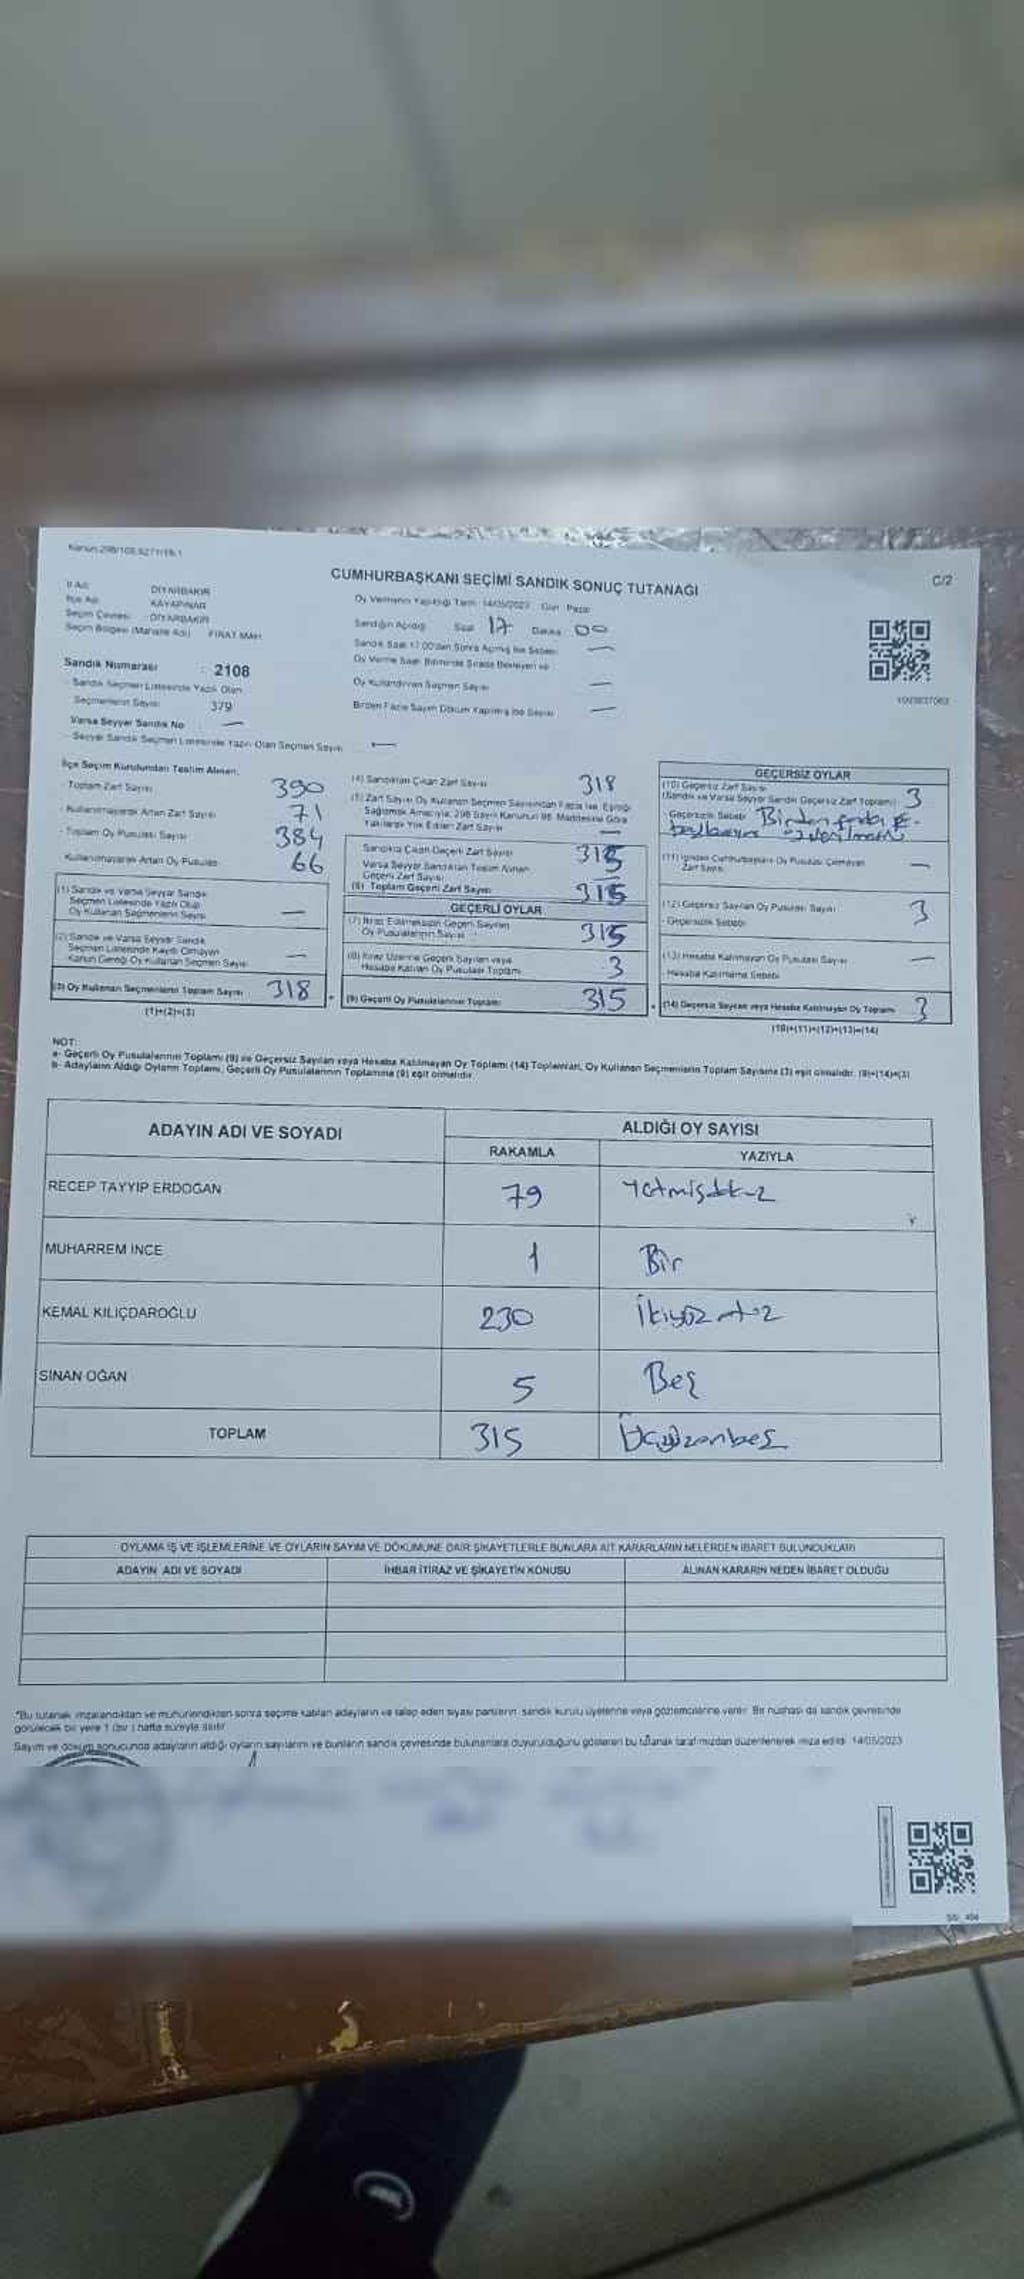 CUMHURBAŞKANI SEÇİMİ SANDIK SONUÇ TUTANAĞI
C/2
İl Adı : DİYARBAKIR
İlçe Adı : KAYAPINAR
Seçim Çevresi : DİYARBAKIR
Seçim Bölgesi (Mahalle Adı) : FIRAT MAH.
Sandık Numarası : 2108
Sandık Seçmen Listesinde Yazılı Olan
Seçmenlerin Sayısı : 379
Varsa Seyyar Sandık No : —
Seyyar Sandık Seçmen Listesinde Yazılı Olan Seçmen Sayısı : —
Oy Vermenin Yapıldığı Tarih : 14/05/2023 Gün : Pazar
Sandığın Açıldığı Saat 17 Dakika 00
Sandık Saat 17:00'den Sonra Açılmış İse Sebebi : —
Oy Verme Saati Bitiminde Sırada Bekleyen ve
Oy Kullandırılan Seçmen Sayısı : —
Birden Fazla Sayım Döküm Yapılmış İse Sayısı : —
İlçe Seçim Kurulundan Teslim Alınan;
- Toplam Zarf Sayısı : 390
- Kullanılmayarak Artan Zarf Sayısı : 71
- Toplam Oy Pusulası Sayısı : 384
Kullanılmayarak Artan Oy Pusulası : 66
(1) Sandık ve Varsa Seyyar Sandık
Seçmen Listesinde Yazılı Olup
Oy Kullanan Seçmenlerin Sayısı —
(2) Sandık ve Varsa Seyyar Sandık
Seçmen Listesinde Kayıtlı Olmayan
Kanun Gereği Oy Kullanan Seçmen Sayısı —
(3) Oy Kullanan Seçmenlerin Toplam Sayısı 318
(1)+(2)=(3)
(4) Sandıktan Çıkan Zarf Sayısı 318
(5) Zarf Sayısı Oy Kullanan Seçmen Sayısından Fazla İse, Eşitliği
Sağlamak Amacıyla, 298 Sayılı Kanunun 98. Maddesine Göre
Yakılarak Yok Edilen Zarf Sayısı —
Sandıkta Çıkan Geçerli Zarf Sayısı 315
Varsa Seyyar Sandıktan Teslim Alınan
Geçerli Zarf Sayısı —
(6) Toplam Geçerli Zarf Sayısı 315
GEÇERLİ OYLAR
(7) İtiraz Edilmeksizin Geçerli Sayılan
Oy Pusulalarının Sayısı 315
(8) İtiraz Üzerine Geçerli Sayılan veya
Hesaba Katılan Oy Pusulası Toplamı 3
(9) Geçerli Oy Pusulalarının Toplamı 315
GEÇERSİZ OYLAR
(10) Geçersiz Zarf Sayısı
(Sandık ve Varsa Seyyar Sandık Geçersiz Zarf Toplamı) 3
- Geçersizlik Sebebi : Birden fazla
(11) İçinden Cumhurbaşkanı Oy Pusulası Çıkmayan
Zarf Sayısı —
(12) Geçersiz Sayılan Oy Pusulası Sayısı 3
- Geçersizlik Sebebi
(13) Hesaba Katılmayan Oy Pusulası Sayısı —
- Hesaba Katılmama Sebebi
(14) Geçersiz Sayılan veya Hesaba Katılmayan Oy Toplamı 3
(10)+(11)+(12)+(13)=(14)
NOT:
a- Geçerli Oy Pusulalarının Toplamı (9) ile Geçersiz Sayılan veya Hesaba Katılmayan Oy Toplamı (14) Toplamları, Oy Kullanan Seçmenlerin Toplam Sayısına (3) eşit olmalıdır. (9)+(14)=(3)
b- Adayların Aldığı Oyların Toplamı, Geçerli Oy Pusulalarının Toplamına (9) eşit olmalıdır.
ADAYIN ADI VE SOYADI
ALDIĞI OY SAYISI
RAKAMLA YAZIYLA
RECEP TAYYİP ERDOĞAN 79 Yetmişdokuz
MUHARREM İNCE 1 Bir
KEMAL KILIÇDAROĞLU 230 İkiyüzotuz
SİNAN OĞAN 5 Beş
TOPLAM 315 Üçyüzonbeş
OYLAMA İŞ VE İŞLEMLERİNE VE OYLARIN SAYIM VE DÖKÜMÜNE DAİR ŞİKAYETLERLE BUNLARA AİT KARARLARIN NELERDEN İBARET BULUNDUKLARI
ADAYIN ADI VE SOYADI İHBAR İTİRAZ VE ŞİKAYETİN KONUSU ALINAN KARARIN NEDEN İBARET OLDUĞU
*Bu tutanak imzalandıktan ve mühürlendikten sonra seçime katılan adayların ve talep eden siyasi partilerin, sandık kurulu üyelerine veya gözlemcilerine verilir. Bir nüshası da sandık çevresinde
görülecek bir yere 1 (bir) hafta süreyle asılır.
Sayım ve döküm sonucunda adayların aldığı oyların sayılarını ve bunların sandık çevresinde bulunanlara duyurulduğunu gösteren bu tutanak tarafımızdan düzenlenerek imza edildi. 14/05/2023